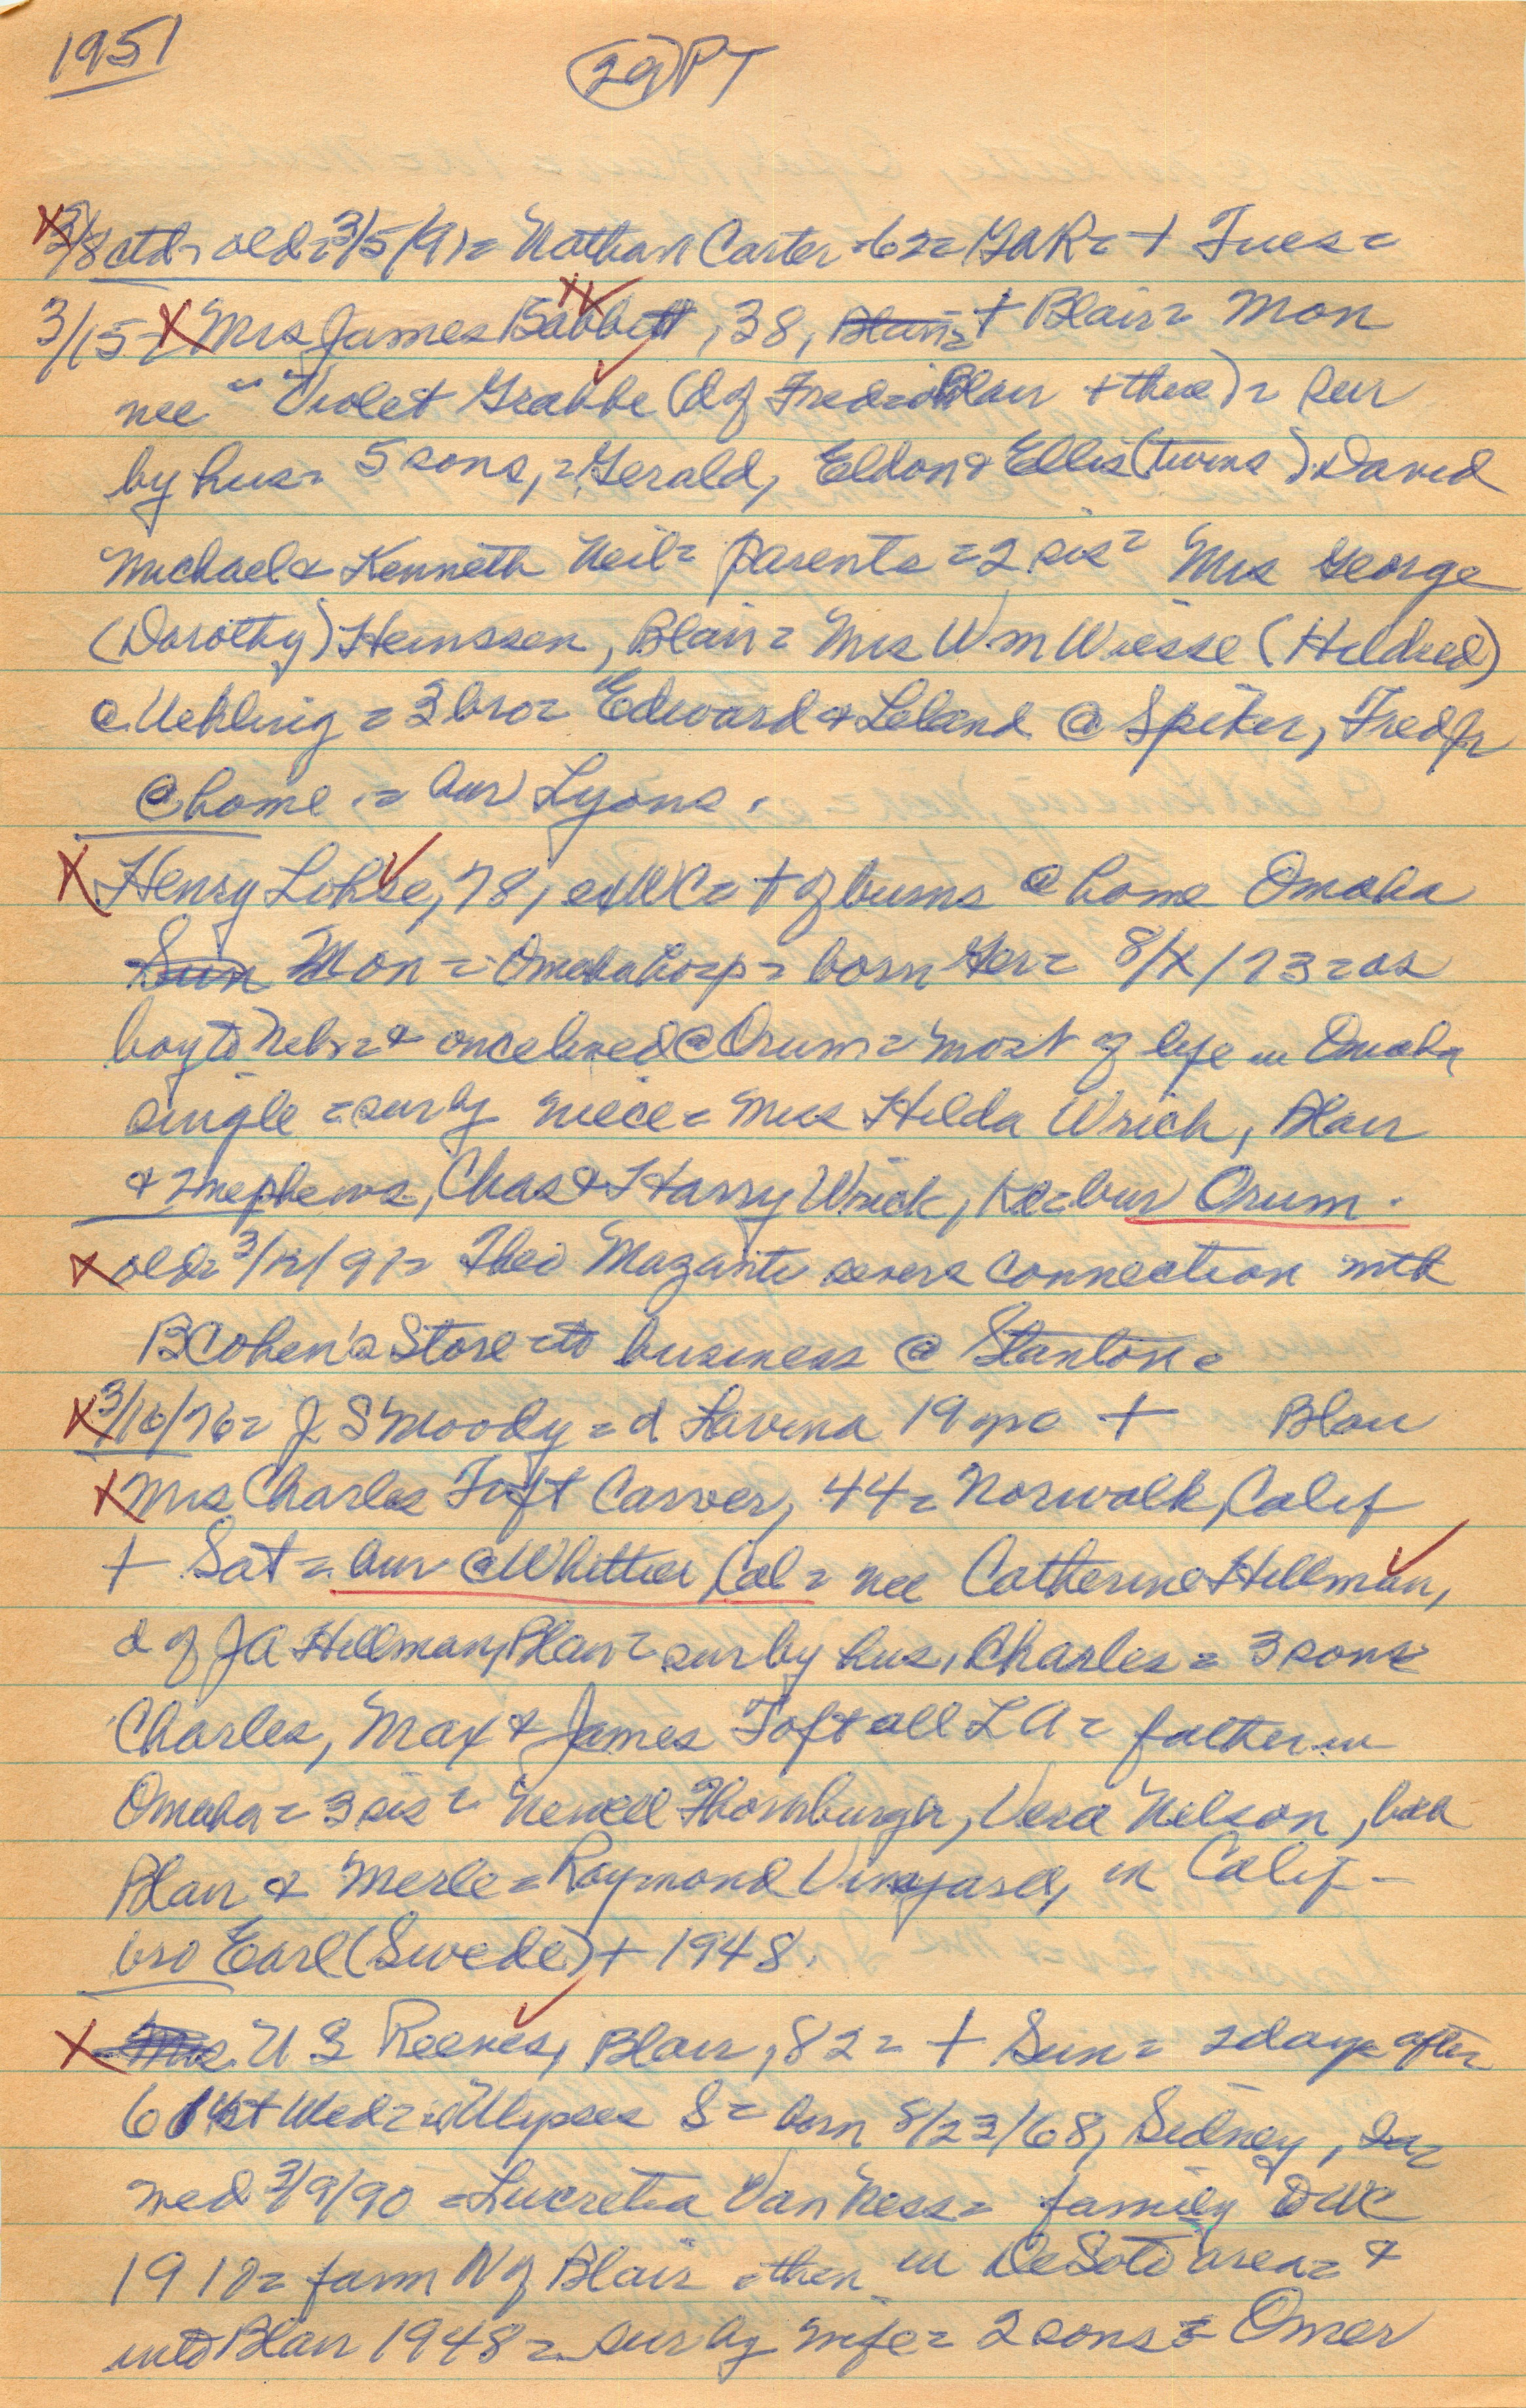 1951
29 PT
3/8 ctd = old = 3/5/91 = Nathan Carter = 62 = GAR = + Tues =
3/15 = X Mrs James Babbitt, 38, Blair = + Blair = Mon
nee Violet Grabbe (d of Fred = Blair + thee) = sur
by hus = 5 sons, = Gerald, Eldon & Ellis (twins) David
Michael & Kenneth Neil = parents = 2 sis = Mrs George
(Dorothy) Heinssen, Blair = Mrs Wm Wiesse (Hildred)
@ Uehling = 3 bro = Edward & Leland @ Spiker, Fred Jr
@ home = bur Lyons.
X Henry Lohse, 78, exWC = + of burns @ home Omaha
Sun Mon = Omaha hosp = born Ger = 8/X/73 = as
boy to Nebr = & once lived @ Orum = most of life in Omaha
single = sur by niece = Miss Hilda Wrich, Blair
& 2 nephews, Chas & Harry Wrich, Kd = bur Orum.
X old = 3/12/91 = Theo Mazanti severs connection with
B Cohen's Store = to business @ Stanton =
X 3/16/76 = J S Moody = d Lavina 19 yrs + Blair
X Mrs Charles Toft Carver, 44 = Norwalk, Calif
+ Sat = bur @ Whittier, Cal = nee Catherine Hillman,
d of J A Hillman, Blair = sur by hus, Charles = 3 sons
Charles, Max & James Toft all LA = father in
Omaha = 3 sis = Newell Thornburgh, Vera Nelson, both
Blair & Merle = Raymond Vinyard, in Calif -
bro Earl (Swede) + 1948.
X Mrs U S Reeves, Blair, 82 = + Sun = 2 days after
61st Wed = Ulysses S = born 8/23/68, Sidney, Ia =
wed 3/9/90 = Lucretia Van Ness = family to WC
1910 = farm N of Blair then in DeSoto area = &
into Blair 1948 = sur by wife = 2 sons = Omer